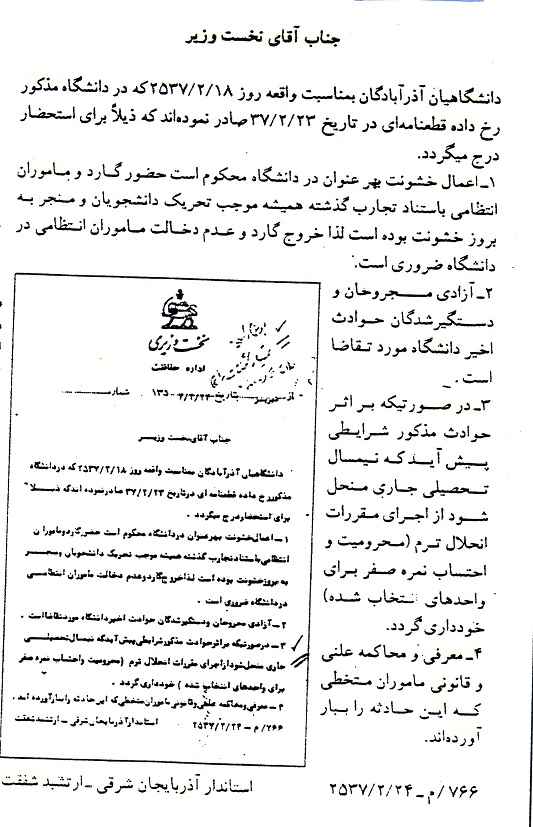 جناب آقای نخست وزیر
دانشگاهیان آذرآبادگان بمناسبت واقعه روز ۲۵۳۷/۲/۱۸ که در دانشگاه مذکور
رخ داده قطعنامه‌ای در تاریخ ۳۷/۲/۲۳ صادر نموده‌اند که ذیلاً برای استحضار
درج میگردد.
۱ـ اعمال خشونت بهر عنوان در دانشگاه محکوم است حضور گارد و ماموران
انتظامی باستناد تجارب گذشته همیشه موجب تحریک دانشجویان و منجر به
بروز خشونت بوده است لذا خروج گارد و عدم دخالت ماموران انتظامی در
دانشگاه ضروری است.
۲ـ آزادی مـجروحان و
دستگیرشدگان حوادث
اخیر دانشگاه مورد تقاضا
است.
۳ـ در صورتیکه بر اثر
حوادث مذکور شرایطی
پیش آید که نیمسال
تحصیلی جاری منحل
شود از اجرای مقررات
انحلال ترم (محرومیت و
احتساب نمره صفر برای
واحدهای انتخاب شده)
خودداری گردد.
۴ـ معرفی و محاکمه علنی
و قانونی ماموران متخطی
که این حادثه را ببار
آورده‌اند.
۷۶۶/م ـ ۲۵۳۷/۲/۲۴
استاندار آذربایجان شرقی ـ ارتشبد شفقت
نخست وزیری
اداره حفاظت
تاریخ ۱۳۵ شماره
جناب آقای نخست وزیر
دانشگاهیان آذرآبادگان بمناسبت واقعه روز ۲۵۳۷/۲/۱۸ که در دانشگاه
مذکور رخ داده قطعنامه ای در تاریخ ۳۷/۲/۲۳ صادر نموده اند که ذیلا
برای استحضار درج میگردد .
۱ – اعمال خشونت بهر عنوان در دانشگاه محکوم است حضور گارد و ماموران
انتظامی باستناد تجارب گذشته همیشه موجب تحریک دانشجویان و منجر
به بروز خشونت بوده است لذا خروج گارد و عدم دخالت ماموران انتظامی
در دانشگاه ضروری است .
۲ – آزادی مجروحان و دستگیر شدگان حوادث اخیر دانشگاه مورد تقاضا است .
۳ – در صورتیکه بر اثر حوادث مذکور شرایطی پیش آید که نیمسال تحصیلی
جاری منحل شود از اجرای مقررات انحلال ترم (محرومیت و احتساب نمره صفر
برای واحدهای انتخاب شده ) خودداری گردد .
۴ – معرفی و محاکمه علنی و قانونی ماموران متخطی که این حادثه را ببار آورده اند .
۷۶۶ / م – ۲۵۳۷/۲/۲۴ استاندار آذربایجان شرقی – ارتشبد شفقت